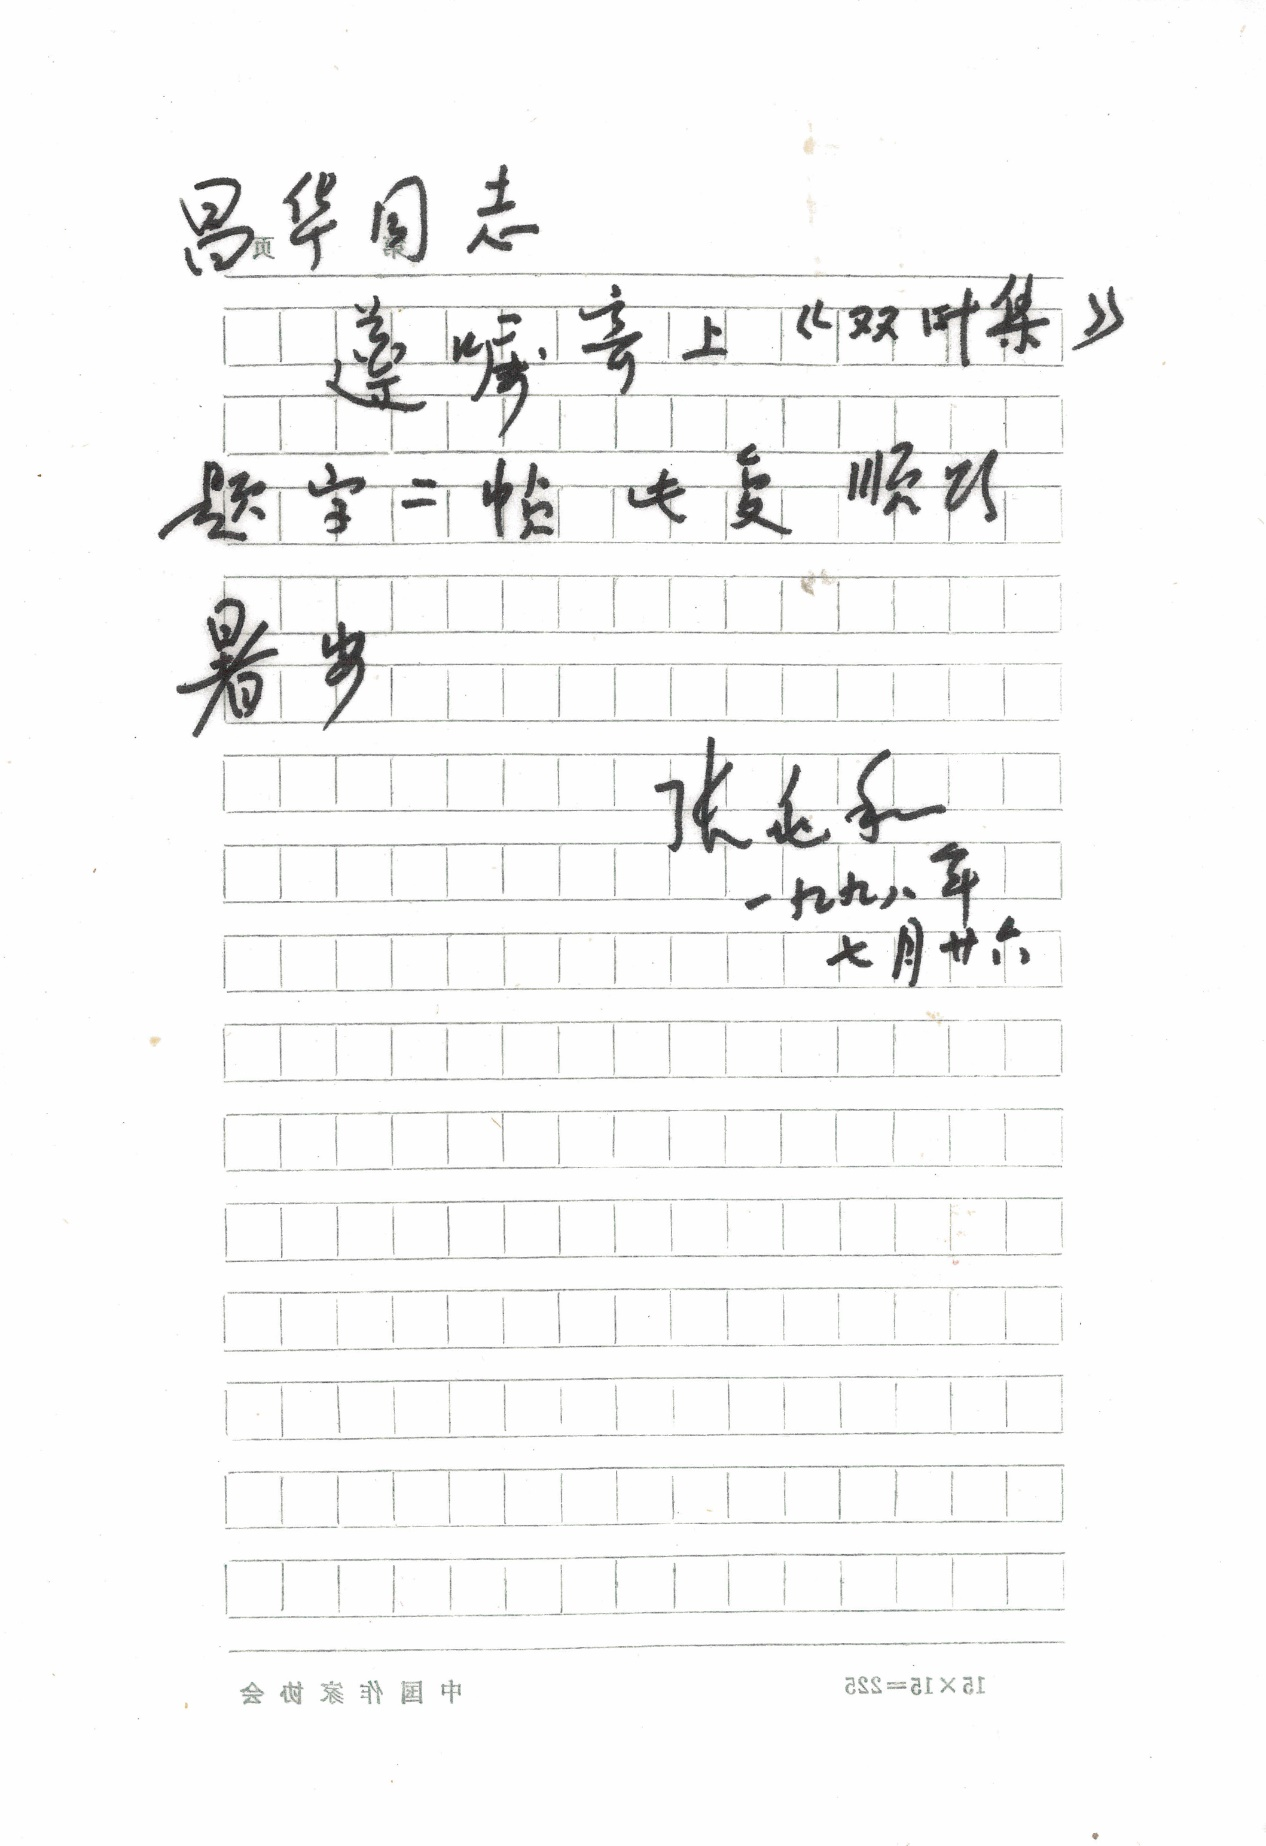 昌华同志
第 页
遵嘱寄上《双叶集》
题字二帧 此复 顺颂
暑安
张兆和
一九九八年
七月廿六
中国作家协会
15×15=225